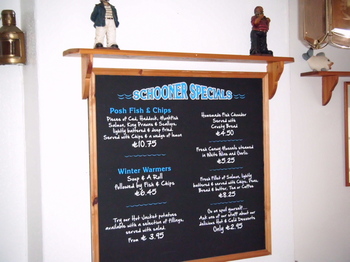 SCHOONER SPECIALS
Posh Fish & Chips
Pieces of Cod, Haddock, Monkfish
Salmon, King Prawns & Scallops,
lightly battered & deep fried
Served with Chips & a wedge of lemon
€10.75
Winter Warmers
Soup & A Roll
Followed by Fish & Chips
€6.45
Try our Hot Jacket potatoes
available with a selection of fillings,
served with salad.
From € 3.95
Homemade Fish Chowder
Served with
Crusty Bread
€4.50
Fresh Conwy Mussels steamed
in White Wine and Garlic.
€5.25
Fresh Fillet of Salmon, lightly
battered & served with Chips, Peas,
Bread & butter, Tea or Coffee
€8.25
Go on spoil yourself -
Ask one of our staff about our
delicious Hot & Cold Desserts
Only €2.95